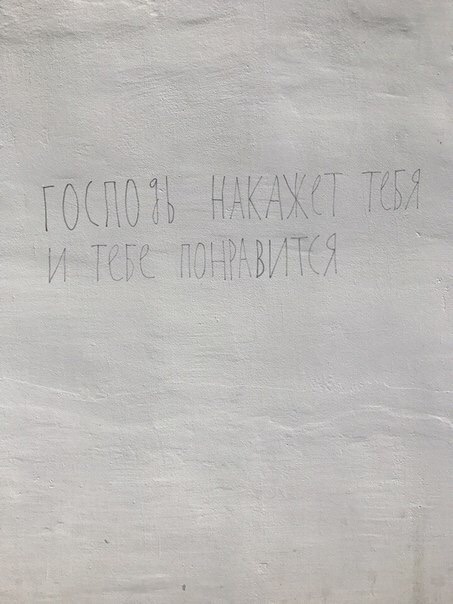 ГОСПОДЬ НАКАЖЕТ ТЕБЯ
И ТЕБЕ ПОНРАВИТСЯ